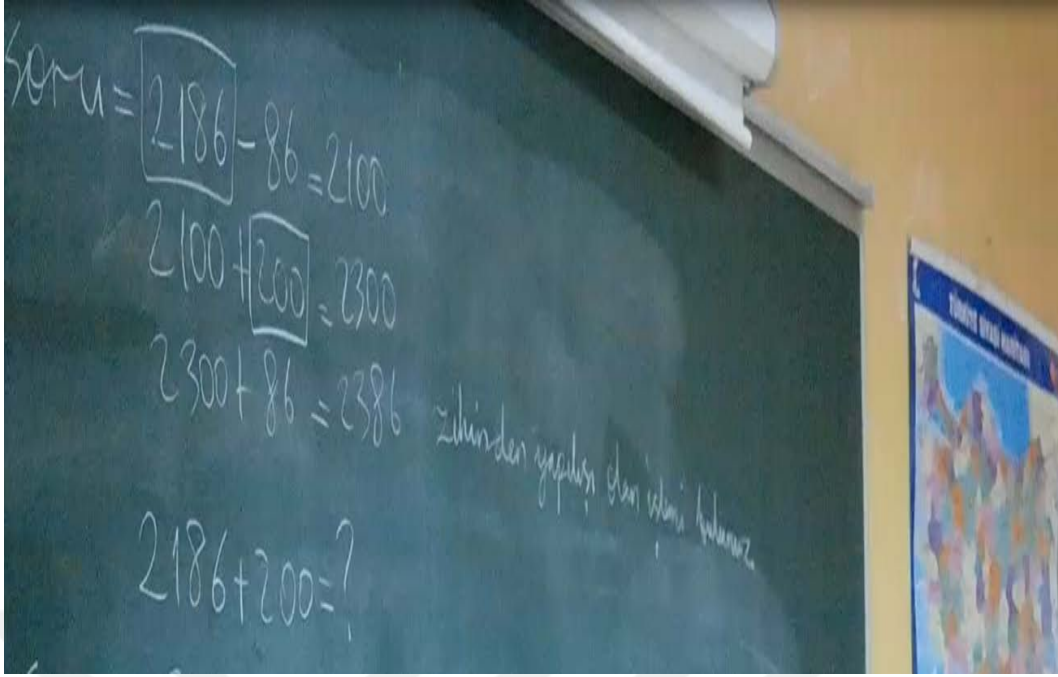 Soru = 2186 - 86 = 2100
2100 + 200 = 2300
2300 + 86 = 2386 zihinden yapılışı olan işlemi bulunuz
2186 + 200 = ?
TÜRKİYE